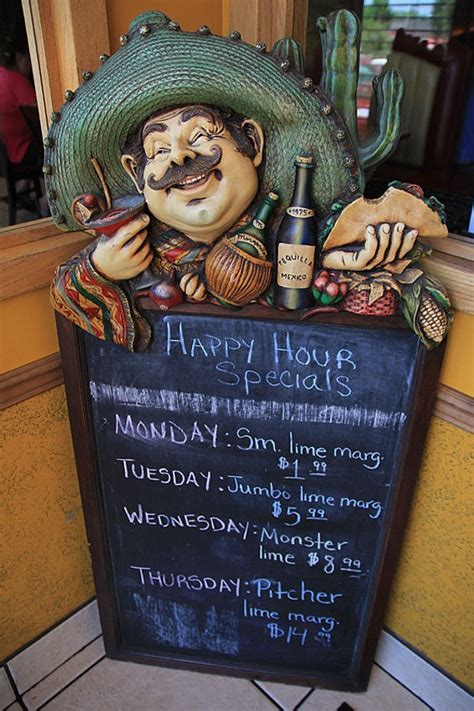 1975
TEQUILLA
MEXICO
HAPPY HOUR
Specials
MONDAY: Sm. lime marg.
$1 99
TUESDAY: Jumbo lime marg.
$5 99
WEDNESDAY: Monster
lime $8.99
THURSDAY: Pitcher
lime marg.
$14 99